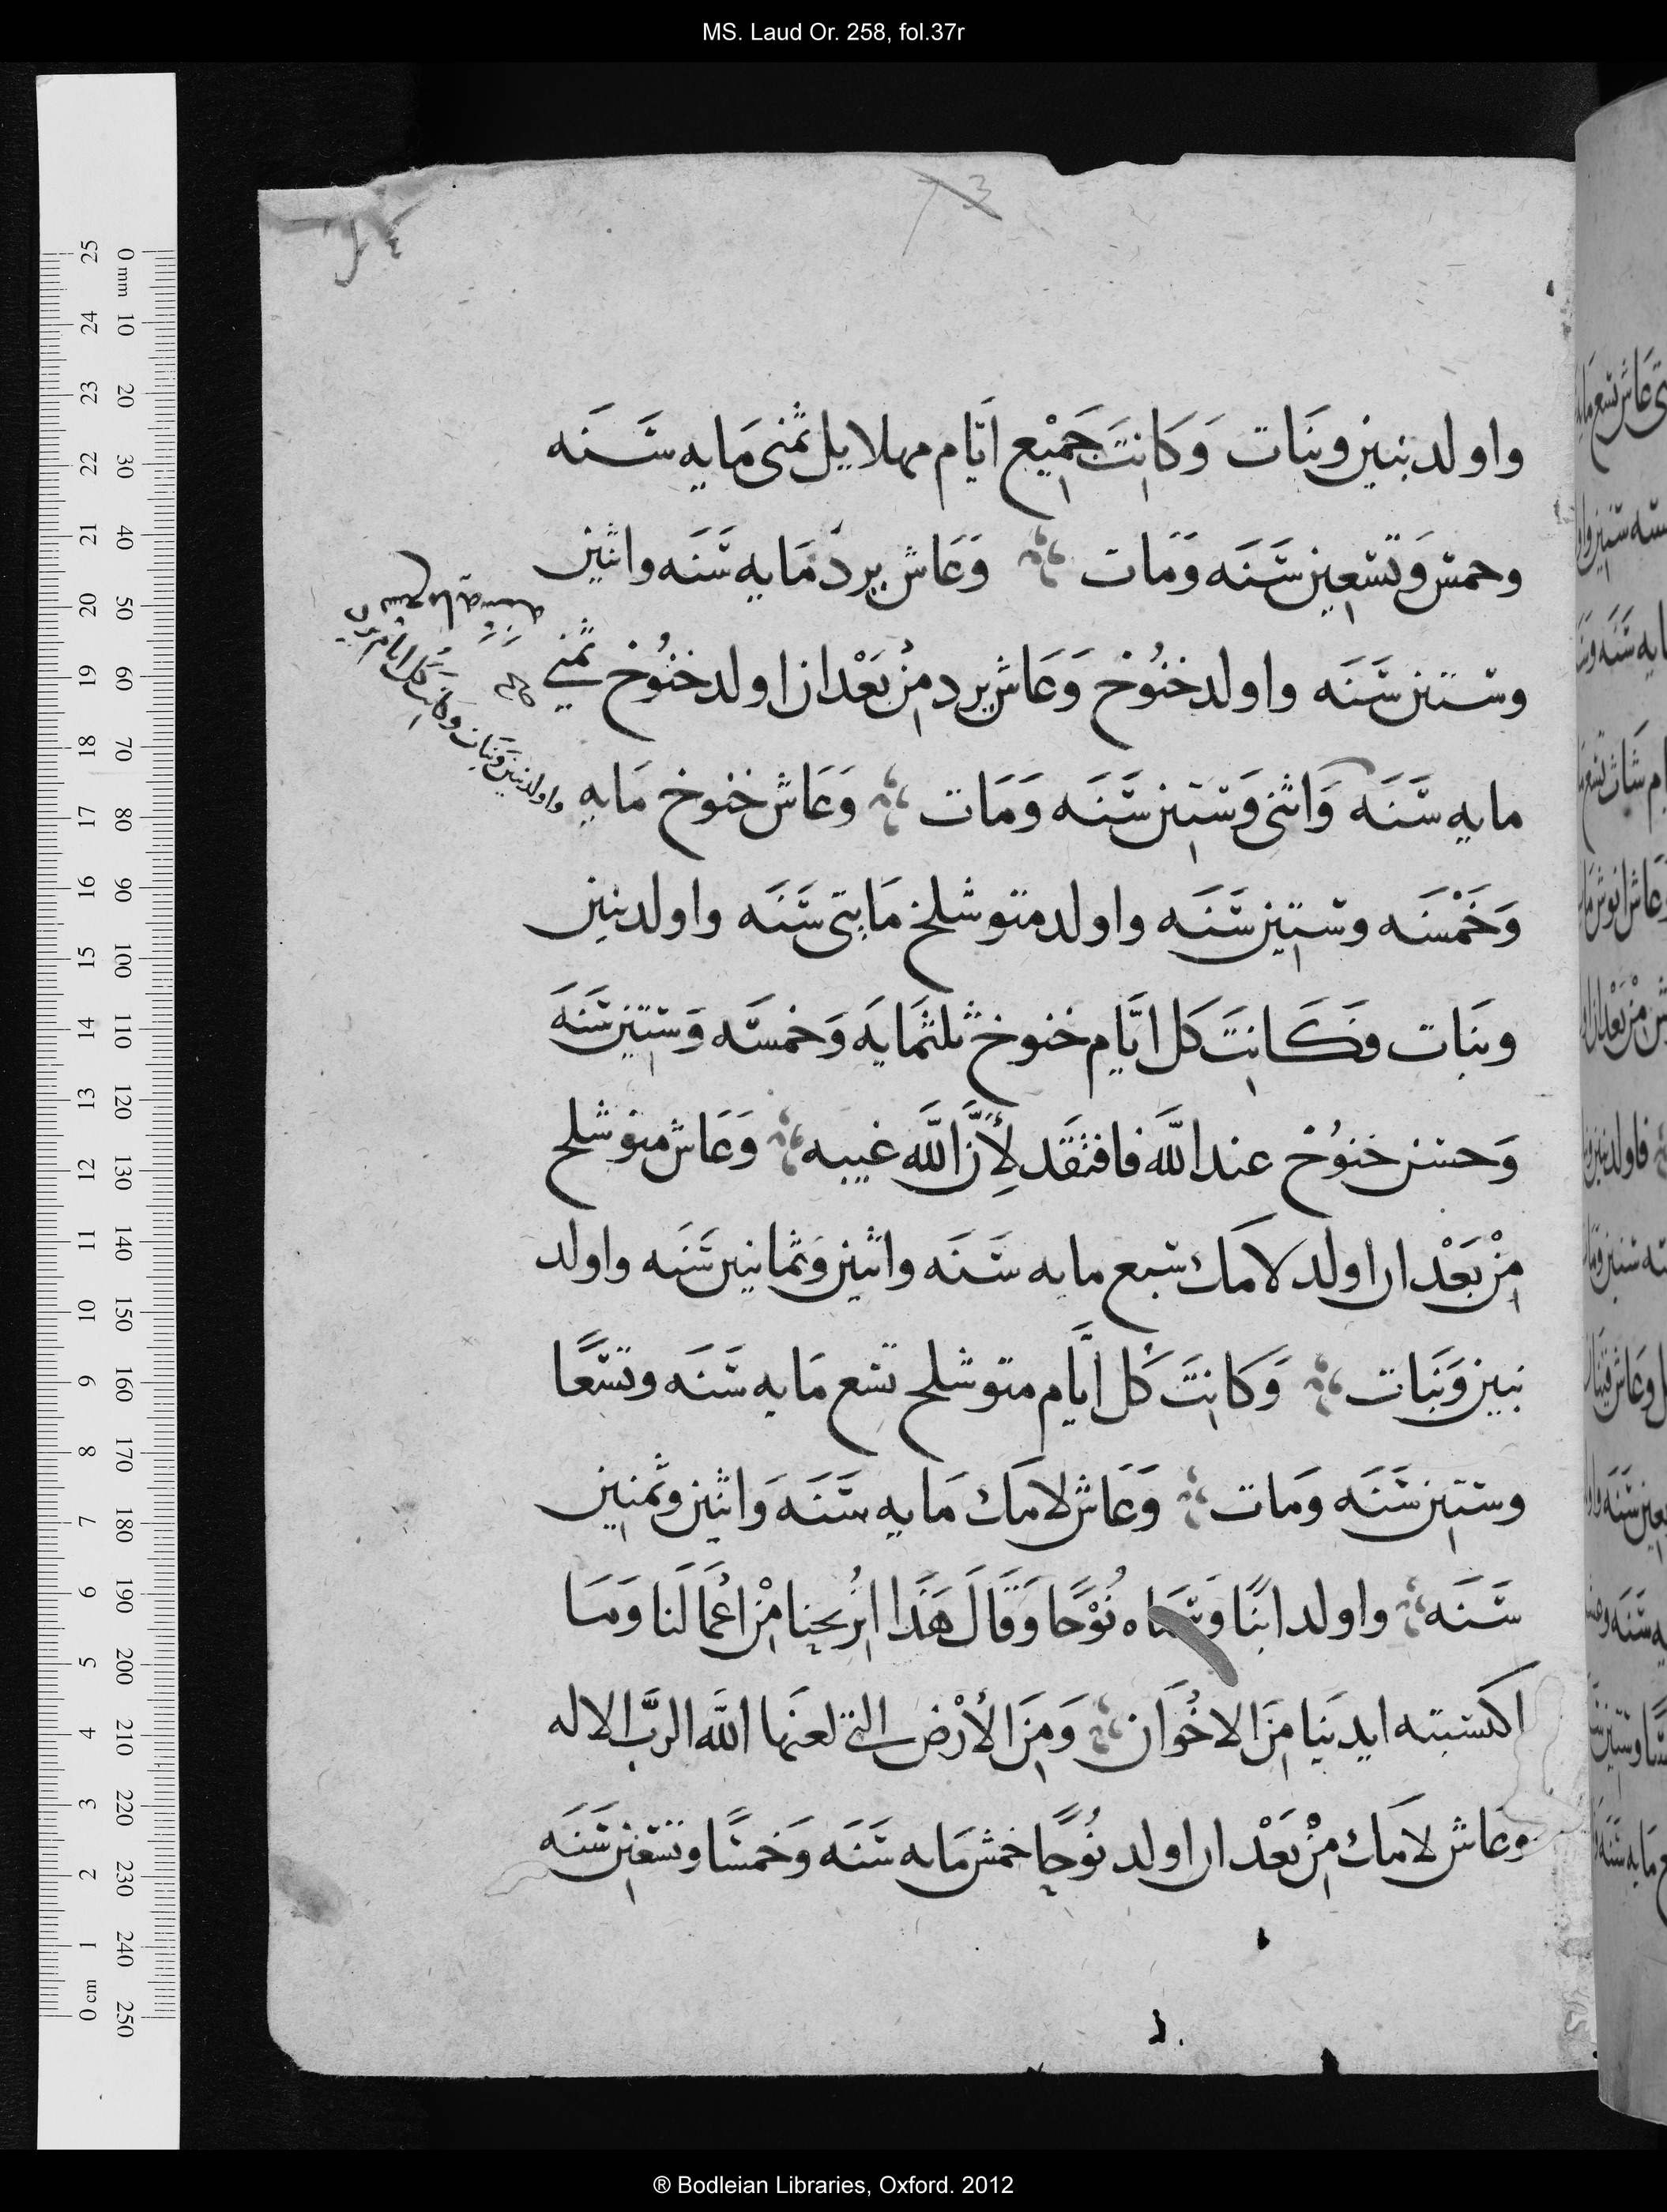 MS. Laud Or. 258, fol.37r
واولد بنين وبنات وَكَانتَ جَمِيْع ايَّام مهلاييل ثمنى مَايه سَنَه
وخمسْ وَتسْعين سَنَه وَمَات وَعَاش يرد مَايه سَنَه واثنين
وستين سَنَه واولد خنُوخ وَعَاش يرد مِنْ بَعْد ان اولد خنُوخ ثمني
مايه سَنَه واولد بنين وَبنَات وكانت كل ايام يرد تسع مايه سنه
مايه سَنَه وَاثنى وَستين سَنَه وَمَات وَعَاش خنوخ مَايه
وَخَمْسَه وستين سَنَه واولد متوشلخ مَايتى سَنَه واولد بنين
وبنَات فكَانتَ كل ايَّام خنوخ ثلثمَايَه وَخمسَه وَستين سَنَهَ
وَحسن خنوُخ عند اللَّه فافتقَد لأِنَّ اللَّه غيبه وَعَاش متوشلح
مِنْ بَعْد ان اولد لامَك سبع مايه سَنَه واثنين وَثمانين سَنَه واولد
بنين وَبنَات وَكَانتَ كل ايَّام متوشلح تسع مَايه سَنَه وتسْعًا
وستين سَنَه ومَات وَعَاش لامَك مَايه سَنَهَ وَاثنين وثمنين
سَنَه واولد ابنًا وَسَمَاه نُوْحًا وَقَالَ هَذَا يُريحنا مِنْ اعْمَالَنا وَمَا
اكتسبته ايدينَا مِنَ الاخُوَان وَمِنَ الأرْض التى لعنَها اللَّه الربَّ الاله
وعَاش لامَك مِنْ بَعْد ان اولد نوُحًا خمسْ مَايه سَنَه وَخمسًا وتسْعين سَنَه
® Bodleian Libraries, Oxford. 2012